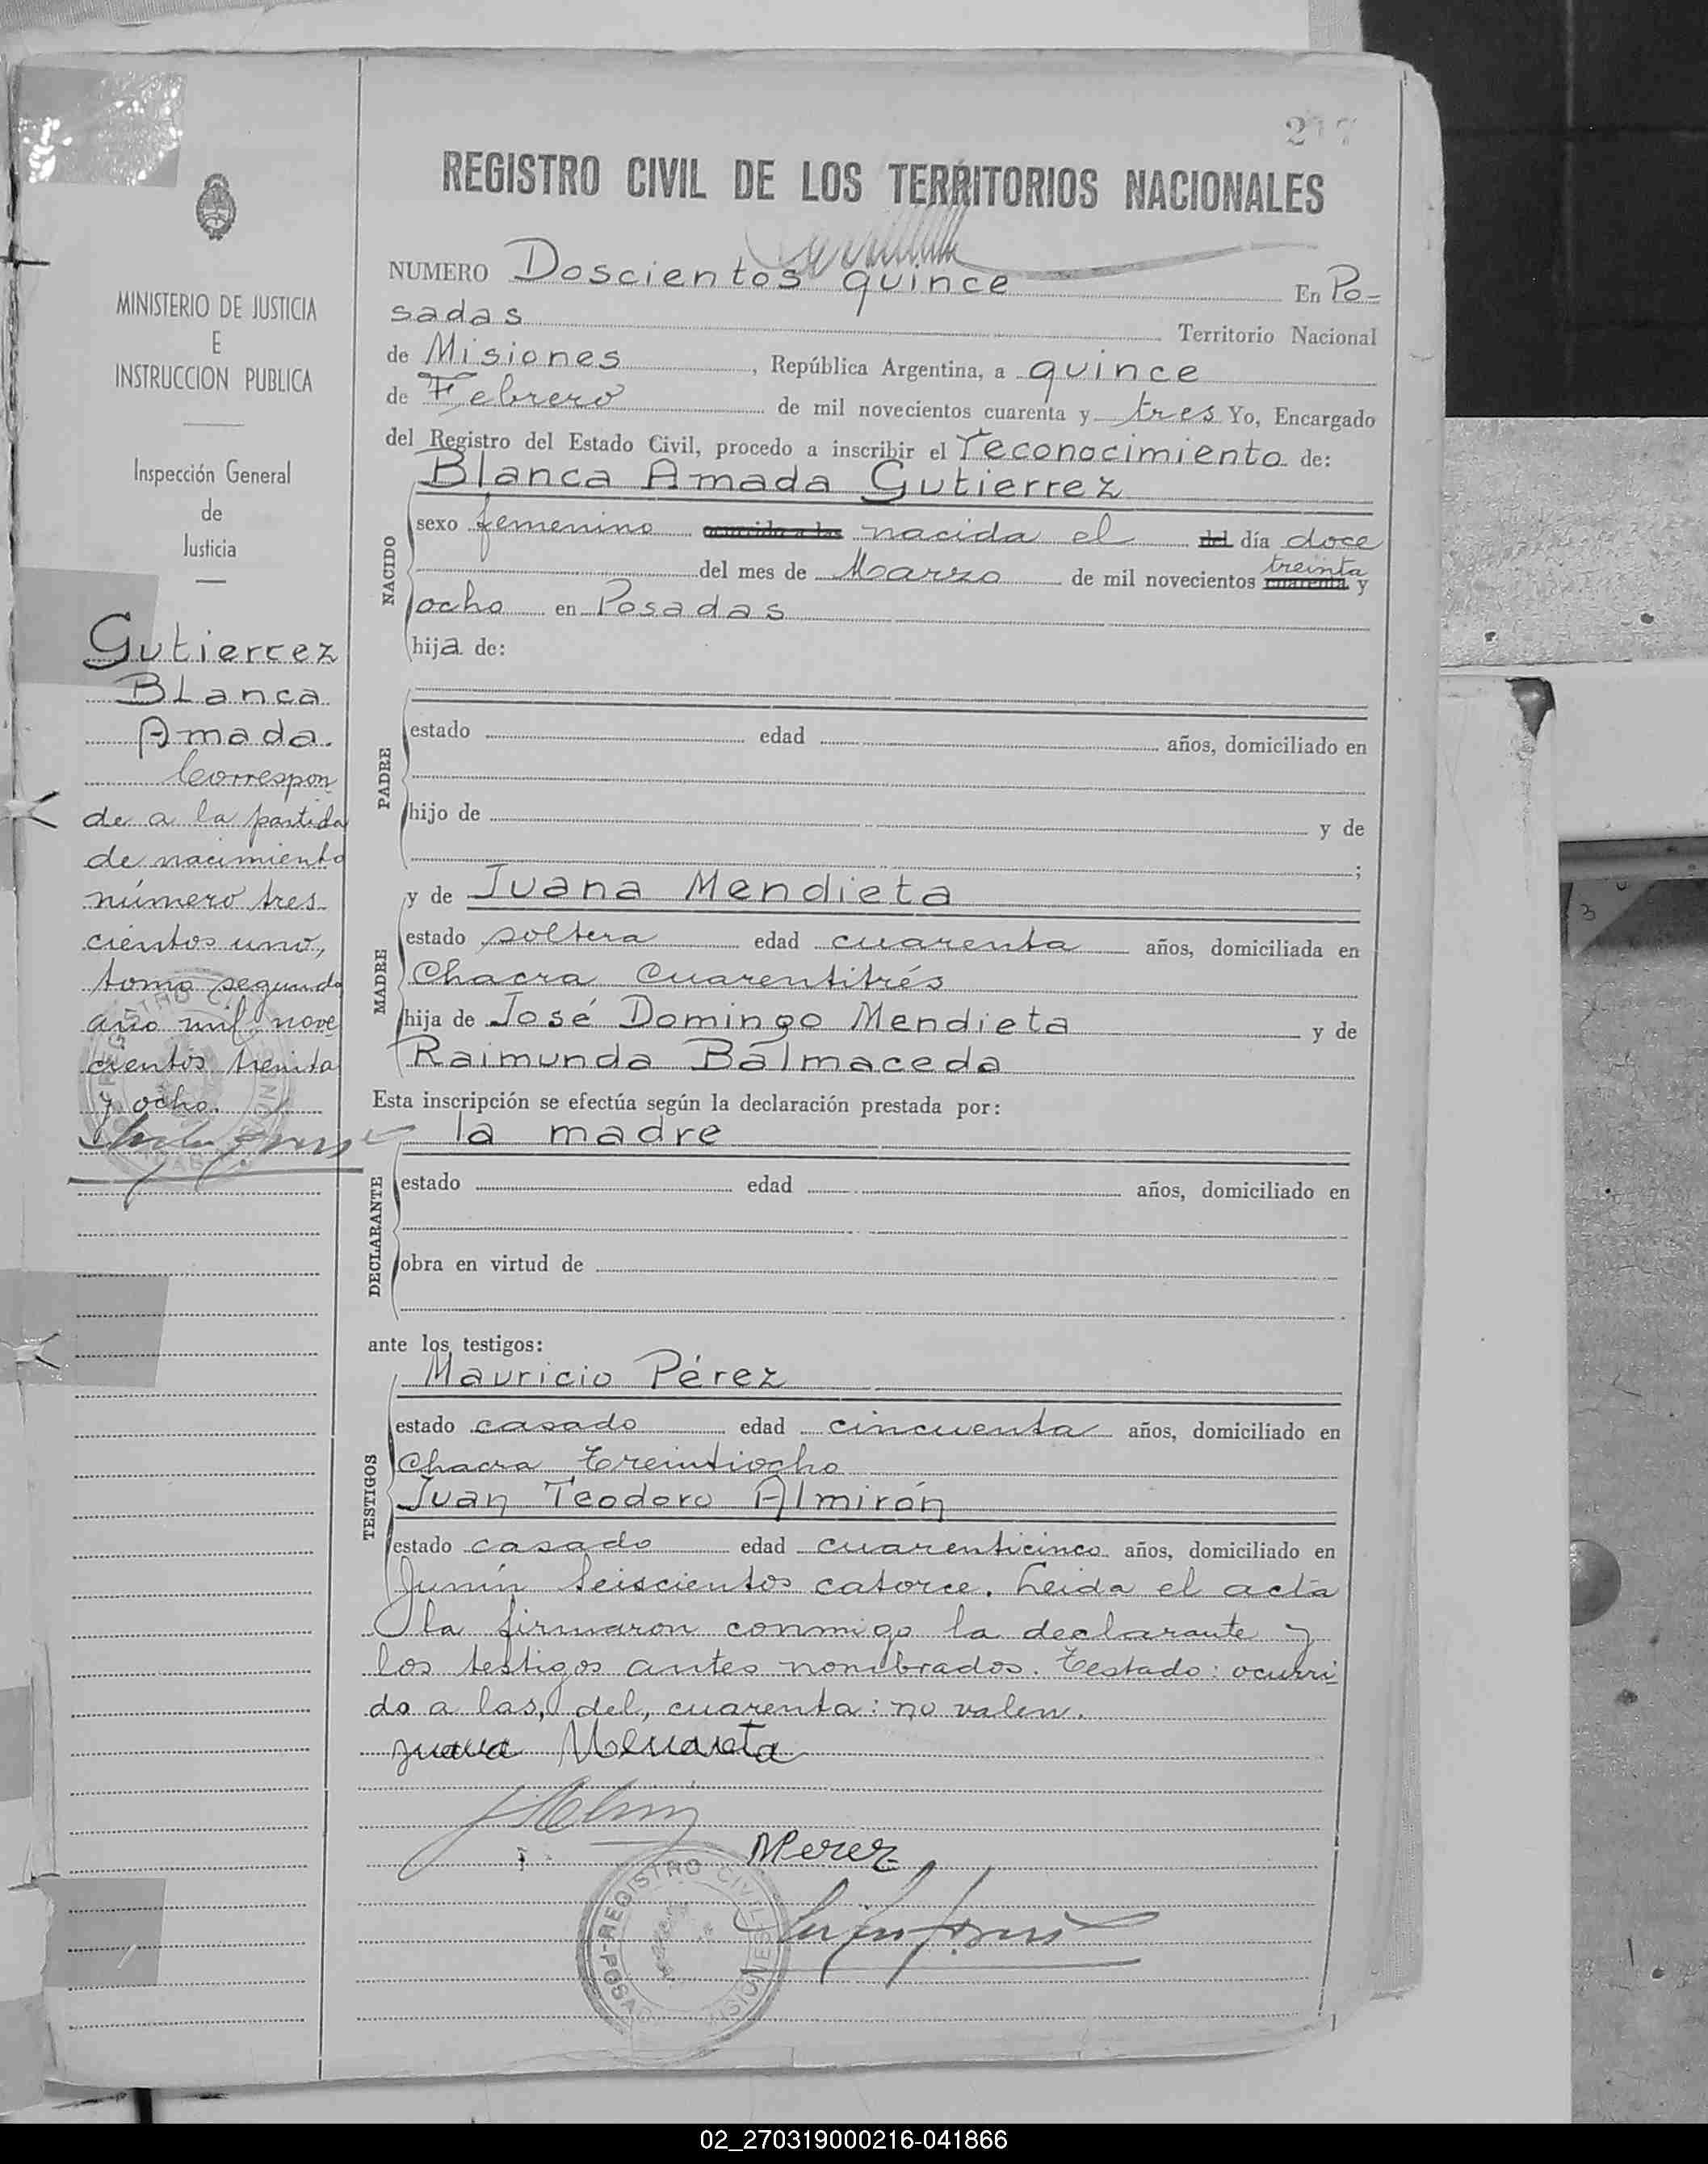 217
REGISTRO CIVIL DE LOS TERRITORIOS NACIONALES
MINISTERIO DE JUSTICIA
E
INSTRUCCION PUBLICA
Inspección General
de
Justicia
Gutierrez
Blanca
Amada.
Correspon
de a la partida
de nacimiento
número tres
cientos uno,
tomo segundo
año mil nove
cientos treinta
y ocho.
NUMERO Doscientos quince En Po=
sadas Territorio Nacional
de Misiones, República Argentina, a quince
de Febrero de mil novecientos cuarenta y tres Yo, Encargado
del Registro del Estado Civil, procedo a inscribir el reconocimiento de:
Blanca Amada Gutierrez
NACIDO
sexo femenino ocurrido a las nacida el del día doce
treinta
del mes de Marzo de mil novecientos cuarenta y
ocho en Posadas
hija de:
PADRE
estado edad años, domiciliado en
hijo de y de
;
y de Juana Mendieta
MADRE
estado soltera edad cuarenta años, domiciliada en
Chacra Cuarentitrés
hija de José Domingo Mendieta y de
Raimunda Balmaceda
Esta inscripción se efectúa según la declaración prestada por:
la madre
DECLARANTE
estado edad años, domiciliado en
obra en virtud de
ante los testigos:
Mauricio Pérez
TESTIGOS
estado casado edad cincuenta años, domiciliado en
Chacra Treintiocho
Juan Teodoro Almirón
estado casado edad cuarenticinco años, domiciliado en
Junín Seiscientos catorce. Leida el acta
la firmaron conmigo la declarante y
los testigos antes nombrados. Testado: ocurri=
do a las, del, cuarenta: no valen.
Juana Mendieta
MPerez
REGISTRO CIVIL
POSADAS MISIONES
02_270319000216-041866